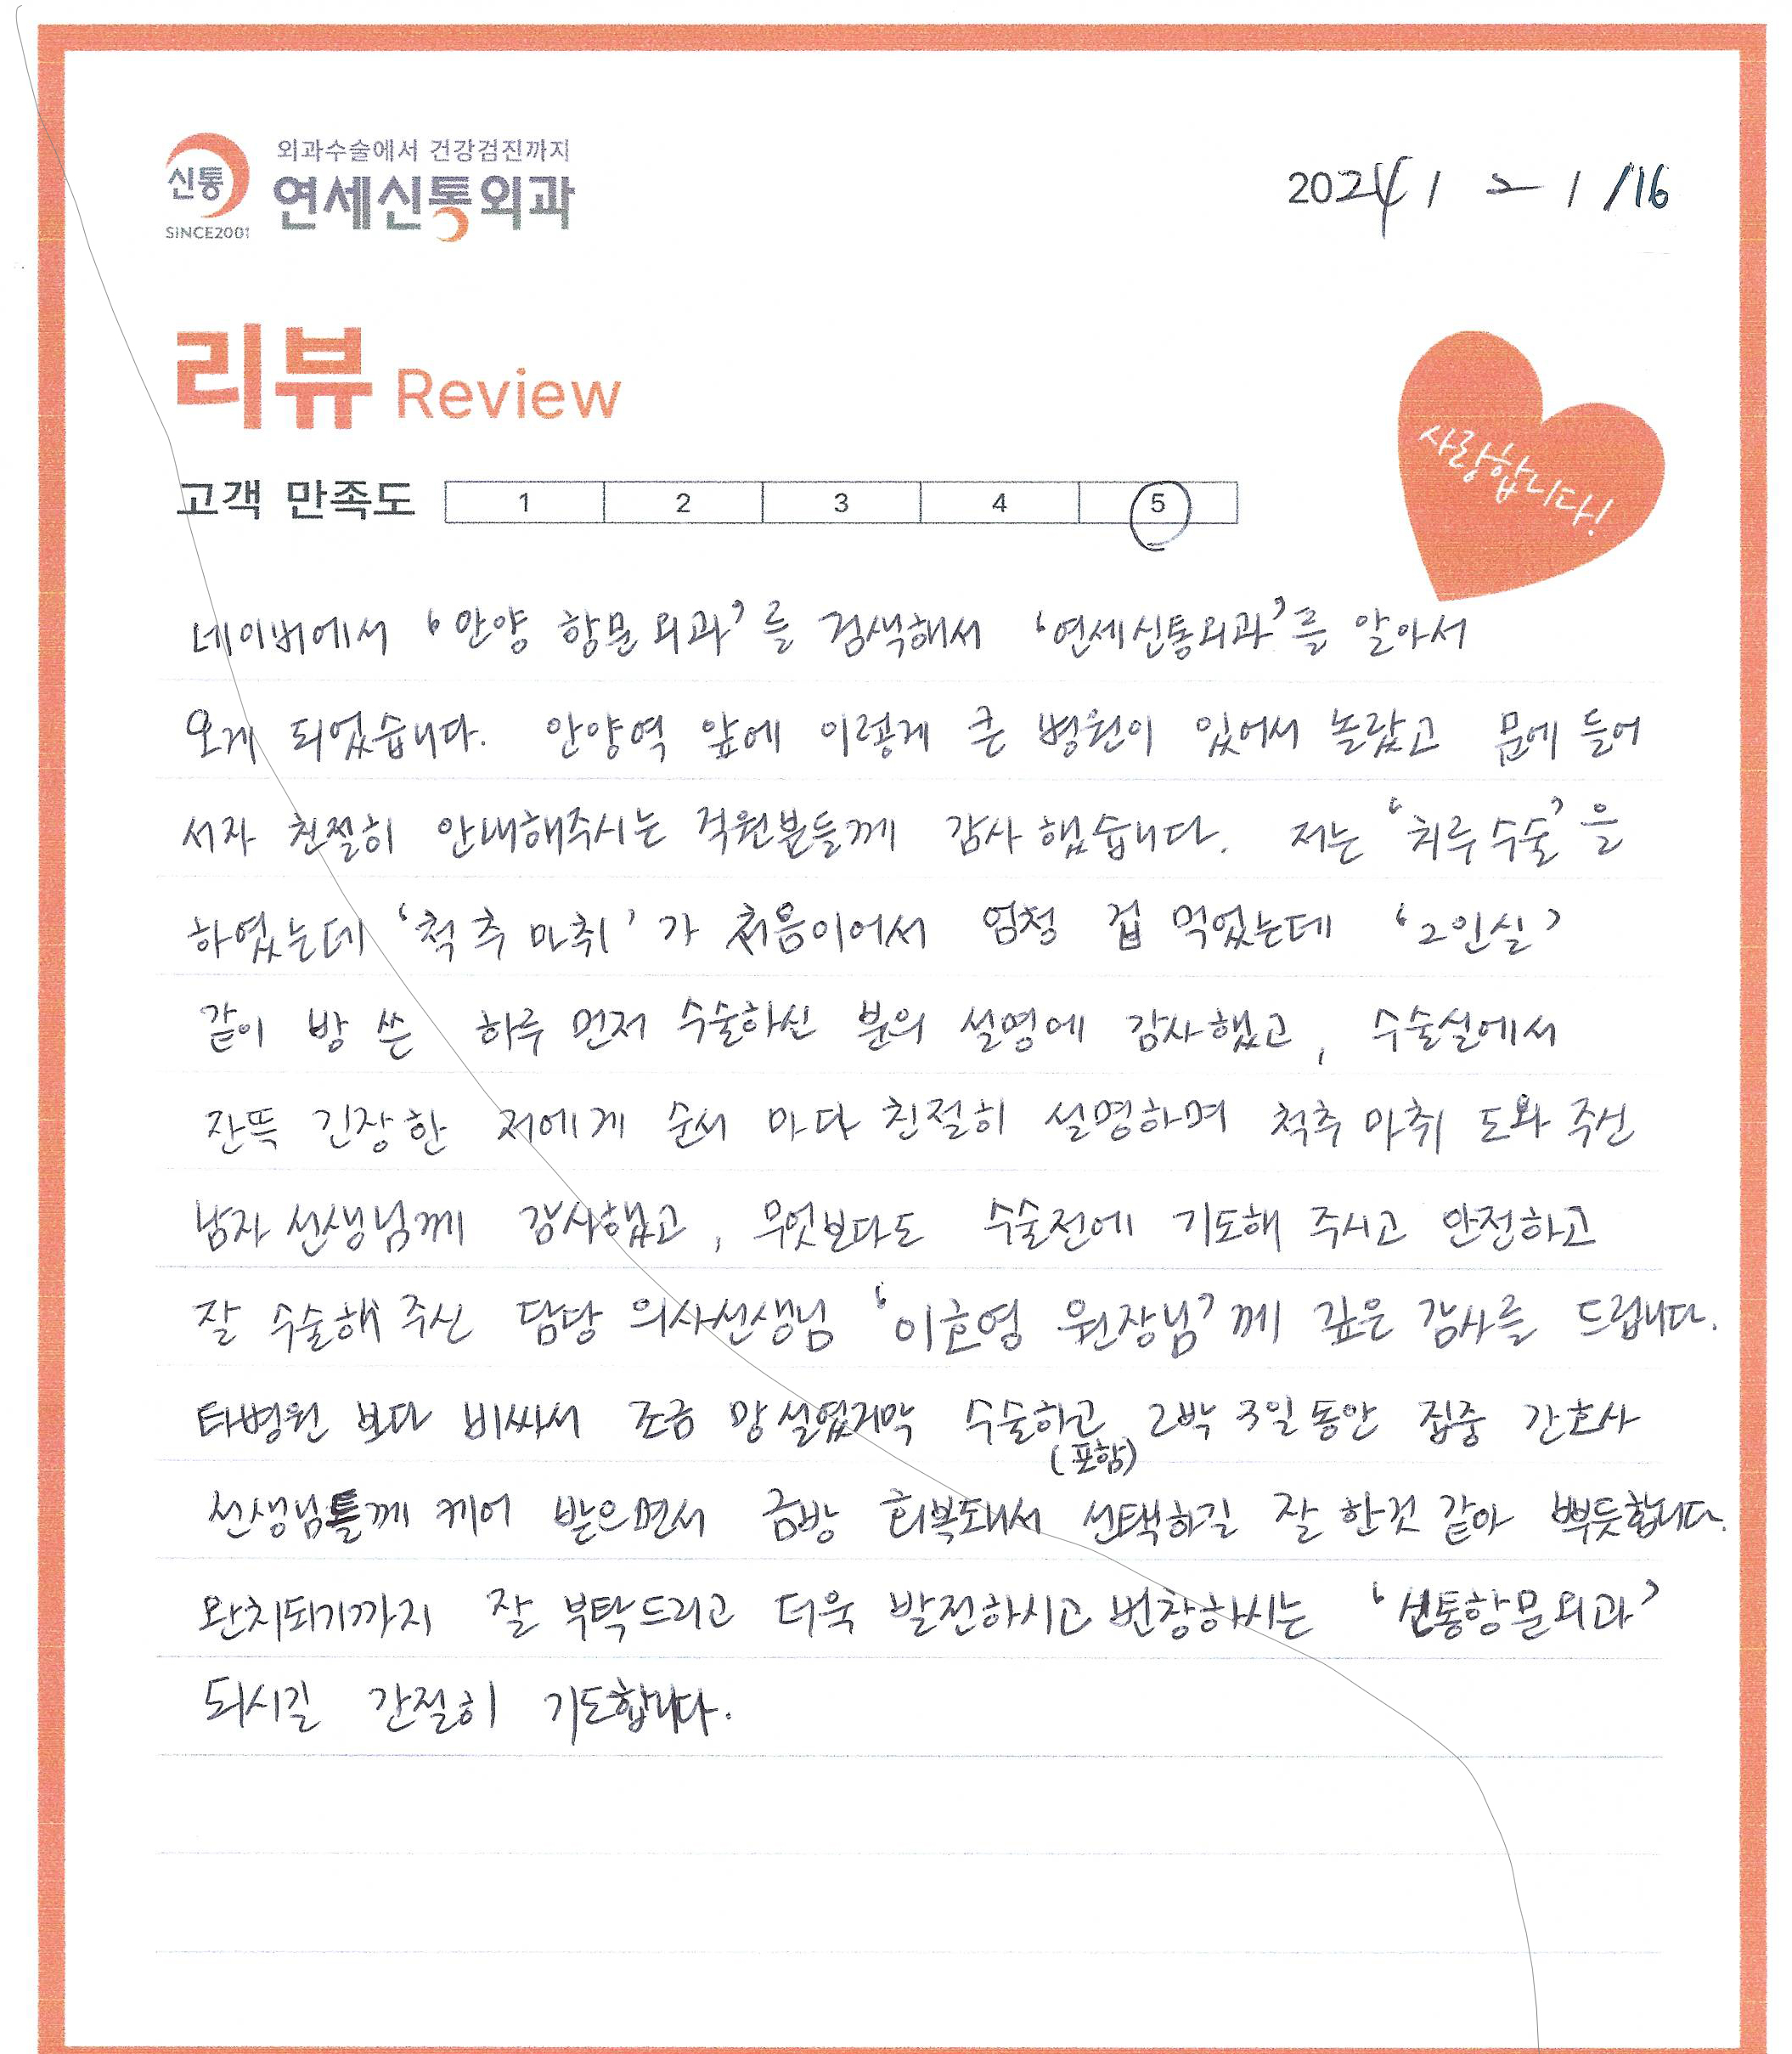 신통
SINCE2001
외과수술에서 건강검진까지
연세신통외과
2024 / 2 / 16
리뷰 Review
고객 만족도 1 2 3 4 5
사랑합니다!
네이버에서 '안양 항문외과'를 검색해서 '연세신통외과'를 알아서
오게 되었습니다. 안양역 앞에 이렇게 큰 병원이 있어서 놀랐고 문에 들어
서자 친절히 안내해주시는 직원분들께 감사했습니다. 저는 '치루수술'을
하였는데 '척추마취'가 처음이어서 엄청 겁먹었는데 '2인실'
같이 방 쓴 하루 먼저 수술하신 분의 설명에 감사했고, 수술실에서
잔뜩 긴장한 저에게 순서 마다 친절히 설명하며 척추마취 도와 주신
남자 선생님께 감사했고, 무엇보다도 수술전에 기도해 주시고 안전하고
잘 수술해 주신 담당 의사선생님 '이호영 원장님'께 깊은 감사를 드립니다.
타병원 보다 비싸서 조금 망설였지만 수술하고 2박 3일동안 집중 간호사
(포함)
선생님들께 케어 받으면서 금방 회복돼서 선택하길 잘 한것 같아 뿌듯합니다.
완치되기까지 잘 부탁드리고 더욱 발전하시고 번창하시는 '신통항문외과'
되시길 간절히 기도합니다.